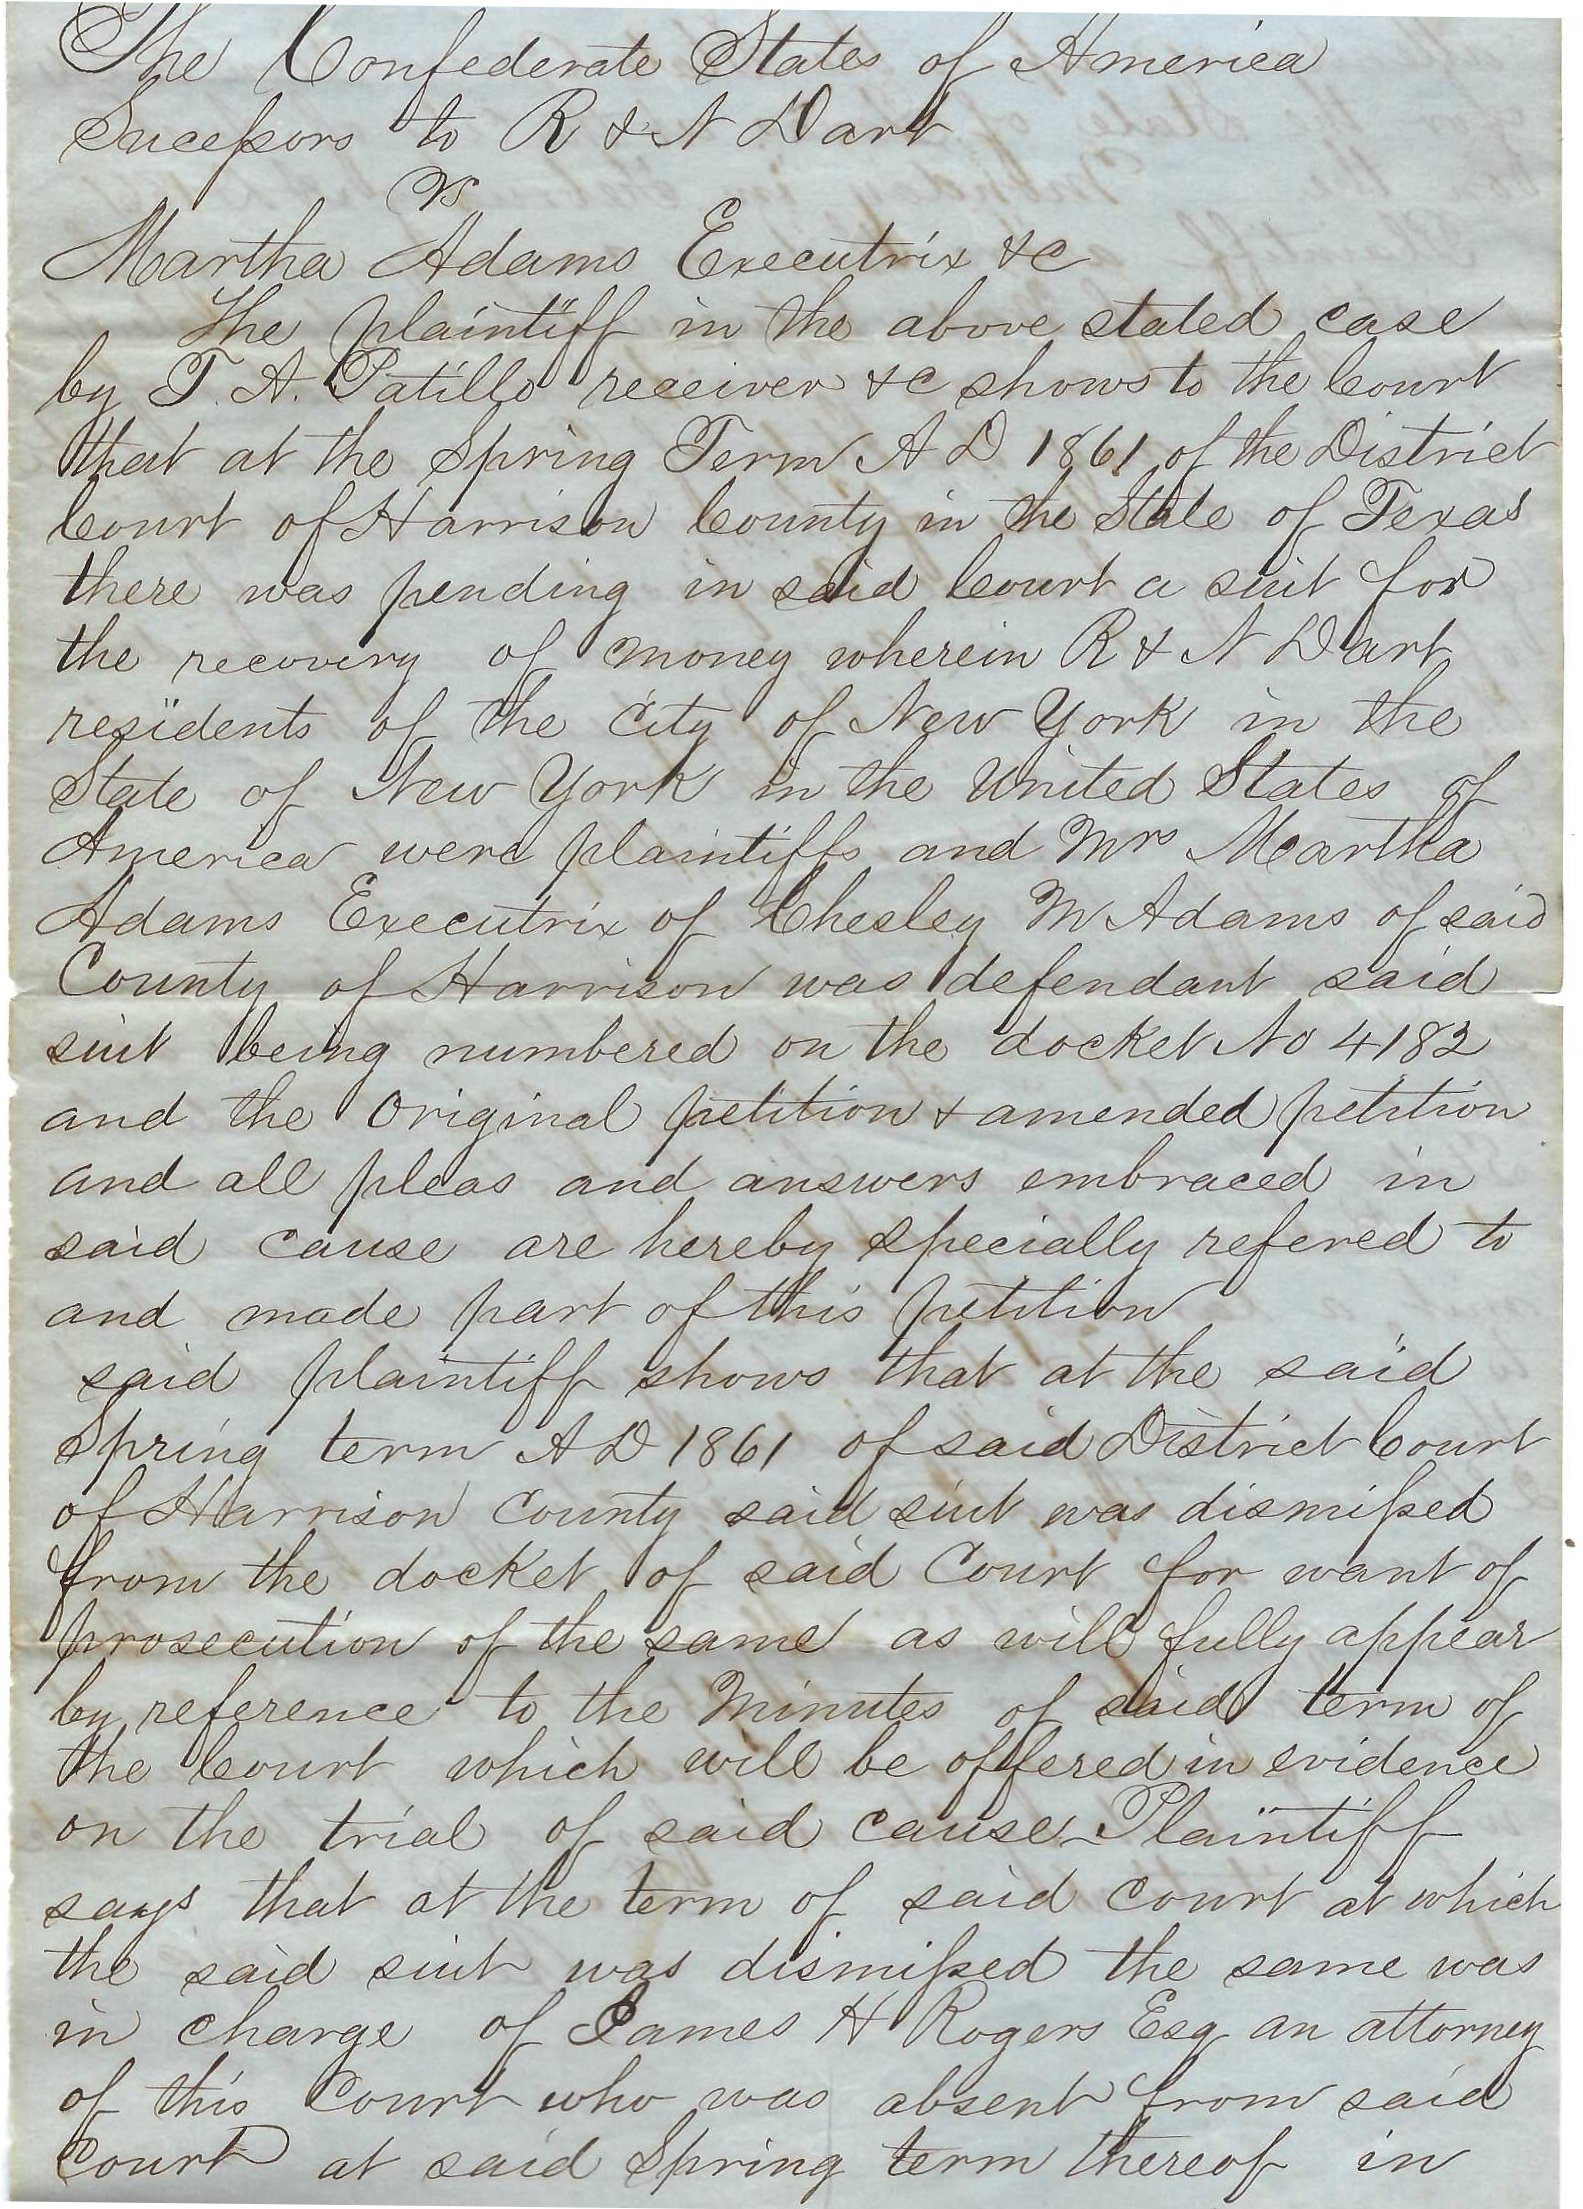 The Confederate States of America
Sucessors to R & N Dart
vs
Martha Adams Executrix &c
The plaintiff in the above stated case
by T. A. Patillo receiver &c shows to the Court
that at the Spring Term A D 1861 of the District
Court of Harrison County in the State of Texas
there was pending in said Court a suit for
the recovery of money wherein R & N Dart
residents of the City of New York in the
State of New York in the United States of
America were plaintiffs and Mrs Martha
Adams Executrix of Chesley M Adams of said
County of Harrison was defendant said
suit being numbered on the docket No 4182
and the Original petition & amended petition
and all pleas and answers embraced in
said cause are hereby specially refered to
and made part of this petition
said plaintiff shows that at the said
Spring term A D 1861 of said District Court
of Harrison County said suit was dismissed
from the docket of said Court for want of
prosecution of the same as will fully appear
by reference to the Minutes of said term of
the Court which will be offered in evidence
on the trial of said cause - Plaintiff
says that at the term of said Court at which
the said suit was dismissed the same was
in charge of James H Rogers Esq an attorney
of this Court who was absent from said
Court at said Spring term thereof in